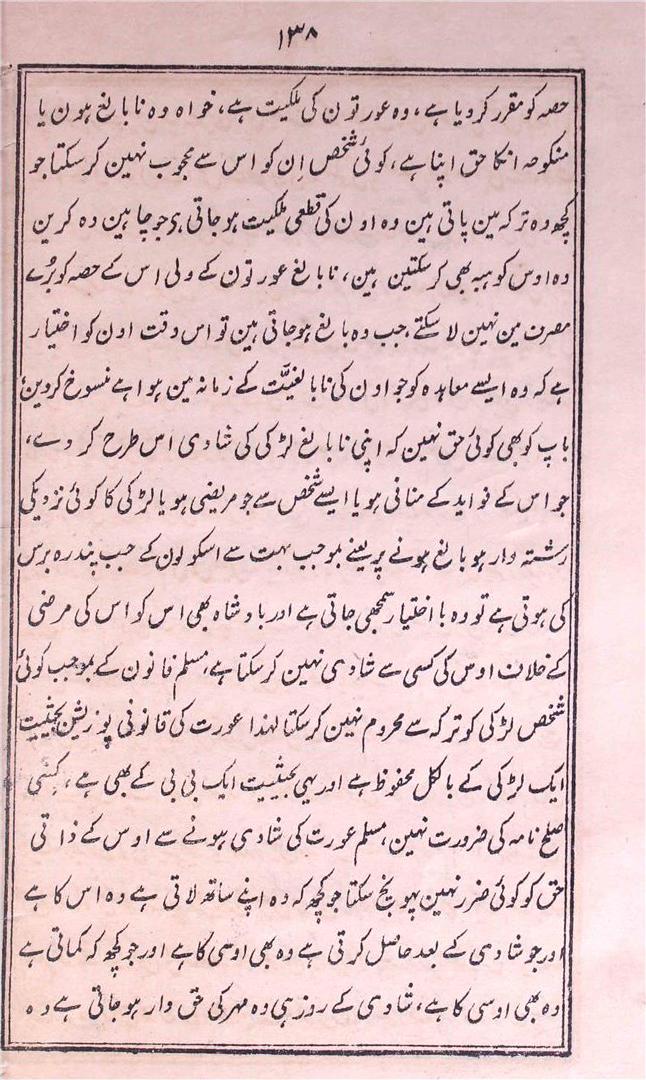 ۱۳۸
حصہ کو مقرر کر دیا ہے، وہ عورتون کی ملکیت ہے، خواہ وہ نابالغ ہون یا
منکوحہ انکا حق اپنا ہے، کوئی شخص اِن کو اس سے محجوب نہین کر سکتا جو
کچھ وہ ترکہ مین پاتی ہین وہ اون کی قطعی ملکیت ہو جاتی ہے جو چاہین وہ کرین
وہ اوس کو ہبہ بھی کر سکتین ہین، نابالغ عورتون کے ولی اس کے حصہ کو بُرے
مصرف مین نہین لا سکتے، جب وہ بالغ ہو جاتی ہین تو اس وقت اون کو اختیار
ہے کہ وہ ایسے معاہدہ کو جو اون کی نابالغیّت کے زمانہ مین ہوا ہے منسوخ کر دین
باپ کو بھی کوئی حق نہین کہ اپنی نابالغ لڑکی کی شادی اس طرح کر دے،
جو اس کے فواید کے منافی ہو یا ایسے شخص سے جو مریض ہو یا لڑکی کا کوئی نزدیکی
رشتہ دار ہو بالغ ہونے پر یعنے بموجب بہت سے اسکولون کے جب پندرہ برس
کی ہوتی ہے تو وہ با اختیار سمجھی جاتی ہے اور بادشاہ بھی اس کو اس کی مرضی
کے خلاف اوس کی کسی سے شادی نہین کر سکتا ہے، مسلم قانون کے بموجب کوئی
شخص لڑکی کو ترکہ سے محروم نہین کر سکتا لہذا عورت کی قانونی پوزیشن بحیثیت
ایک لڑکی کے بالکل محفوظ ہے اور یہی بحیثیت ایک بی بی کے بھی ہے، کسی
صلح نامہ کی ضرورت نہین، مسلم عورت کی شادی ہونے سے اوس کے ذاتی
حق کو کوئی ضرر نہین پہونچ سکتا جو کچھ کہ وہ اپنے ساتھ لاتی ہے وہ اس کا ہے
اور جو شادی کے بعد حاصل کرتی ہے وہ بھی اوسی کا ہے اور جو کچھ کہ کماتی ہے
وہ بھی اوسی کا ہے، شادی کے روز ہی وہ مہر کی حق دار ہو جاتی ہے وہ